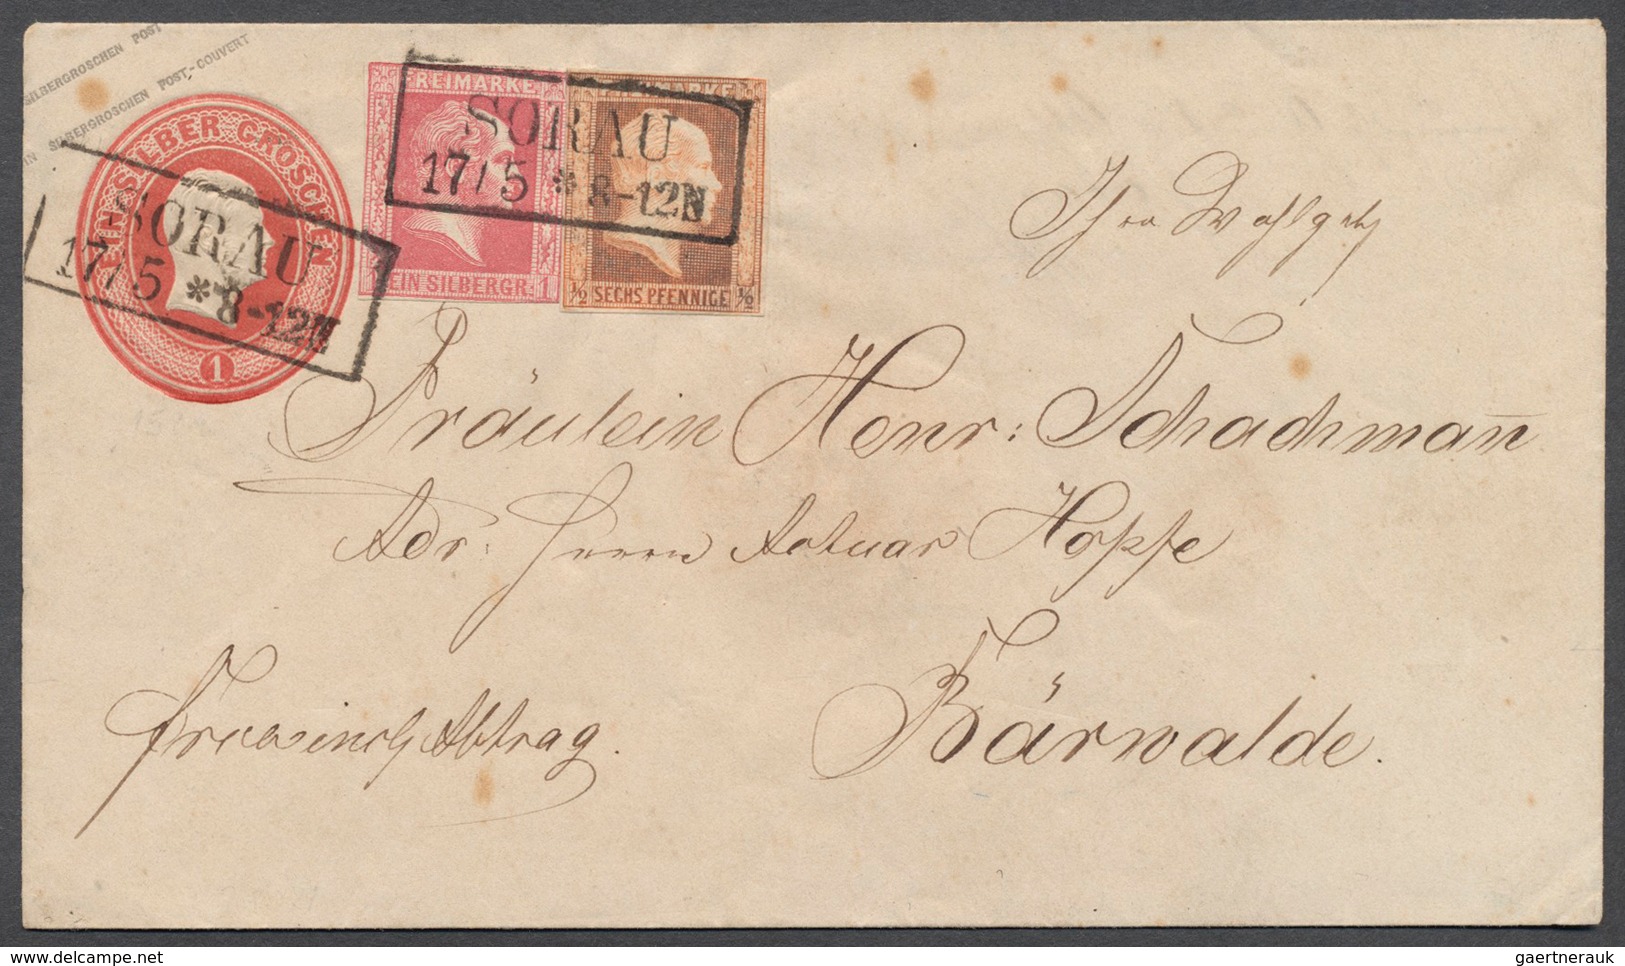 SILBERGROSCHEN POST
EIN SILBERGROSCHEN POST-COUVERT
EIN SILBER GROSCHEN
1
SORAU
17/5 * 8-12N
FREIMARKE
EIN SILBERGR. 1
FREIMARKE
½ SECHS PFENNIGE ½
SORAU
17/5 * 8-12N
Ihro Wohlgeb
Fräulein Henr: Schachman̅
Adr: Herrn Actuar Hopfe
Bärwalde.
gaertnerauk